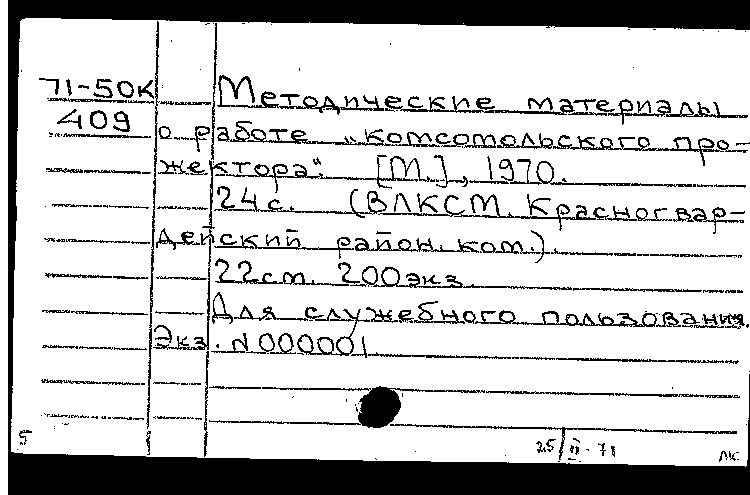 71-50К Методические материалы
409 о работе „комсомольского про-
жектора". [М.], 1970.
24с. (ВЛКСМ. Красногвар-
дейский район. ком.).
22см. 200экз.
Для служебного пользования.
Экз. N000001
5 25/II-71 лк